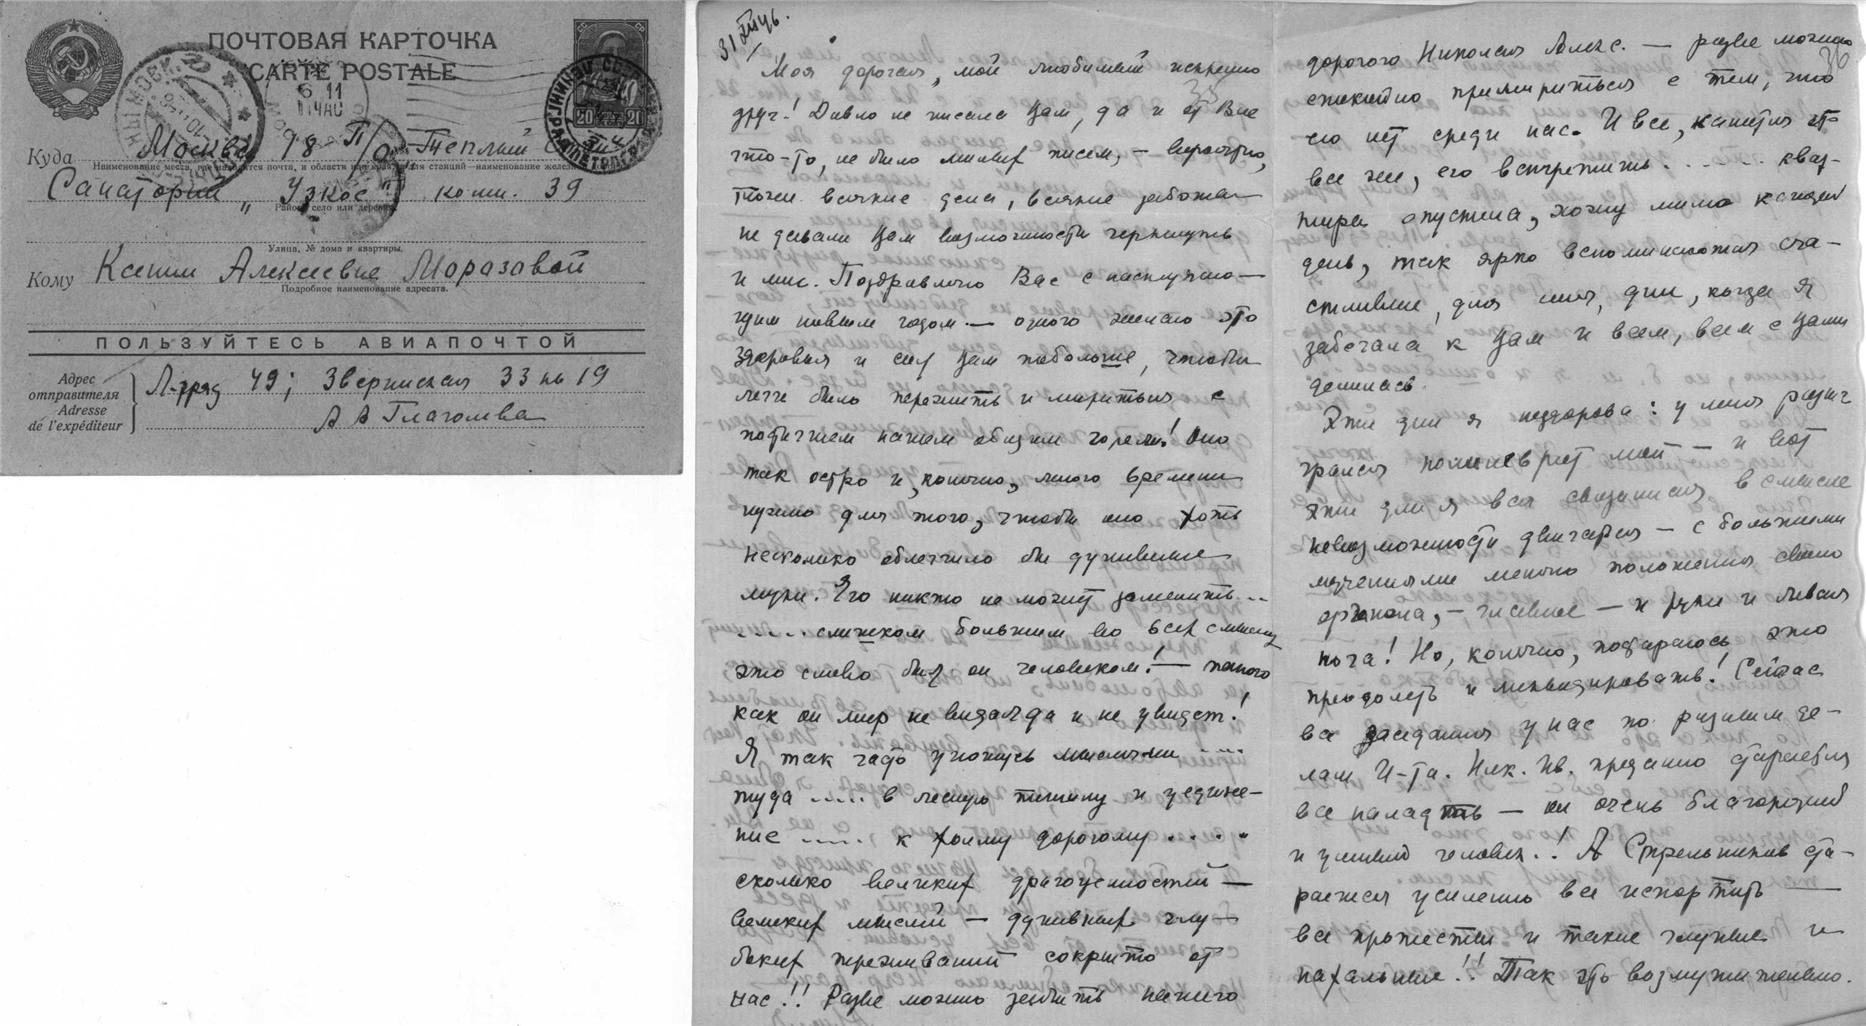 ПОЧТОВАЯ КАРТОЧКА
CARTE POSTALE
Куда Москва 98 П/О Теплый
Наименование места, где находится почта, и области или края, а для станций—наименование желез
Санаторий „Узкое" комн. 39
Район, село или деревня.
Улица, № дома и квартиры.
Кому Ксении Алексеевне Моразовой
Подробное наименование адресата.
ПОЛЬЗУЙТЕСЬ АВИАПОЧТОЙ
Адрес
отправителя
Adresse
de l'expéditeur
Л-град 49; Зверинская 33 кв 19
А В Глаголева
31/XII 46.
Моя дорогая, мой любимый искренно
друг! Давно не писала Вам, да и от Вас
что-то, не было милых писем, — вероятно,
тоже всякие дела, всякие заботы
не давали Вам возможности черкнуть
и мне. Поздравляю Вас с наступаю—
щим новым годом — одного желаю это
здоровья и сил Вам побольше, чтобы
легче было пережить и мириться с
постигшем нашем общим горем! Оно
так остро и, конечно, много времени
нужно для того, чтобы оно хоть
несколько облегчило бы душевные
муки. Его никто не может заменить...
..... слишком большим во всех смыслах
это слово был он человеком! — такого
как он мир не видал и не увидет!
Я так часто уношусь мыслями ....
туда ..... в лесную тишину и уедине—
ние ..... к дорогому .....
сколько великих драгоценностей —
великих мыслей — душевных глу—
боких переживаний сокрыто от
нас!! Разве можно забыть нашего
36
дорогого Николая Алекс. — разве можно
спокойно примириться с тем, что
его нет среди нас. И все, кажется что
все же, его встретить ....... квар-
тира опустела, хожу мимо каждый
день, так ярко вспоминаются сча—
стливые, для меня, дни, когда я
забегала к Вам и всем, всем с Вами
делилась.
Эти дни я нездорова: у меня разыг
грался полиневрит мой — и вот
эти дни я вся скована, в смысле
невозможности двигаться — с большими
мучениями меняю положения своего
— главное — и руки и левая
нога! Но, конечно, постараюсь это
преодолеть и ликвидировать! Сейчас
все заседания у нас по разным де—
лам И-та. Ник. Ив. преданно старается
все наладить — он очень благородный
и умный человек..! А Стрельников ста—
рается усиленно все испортить —
все пропастии и такие глупые и
нахальные!! Так это возмутительно.